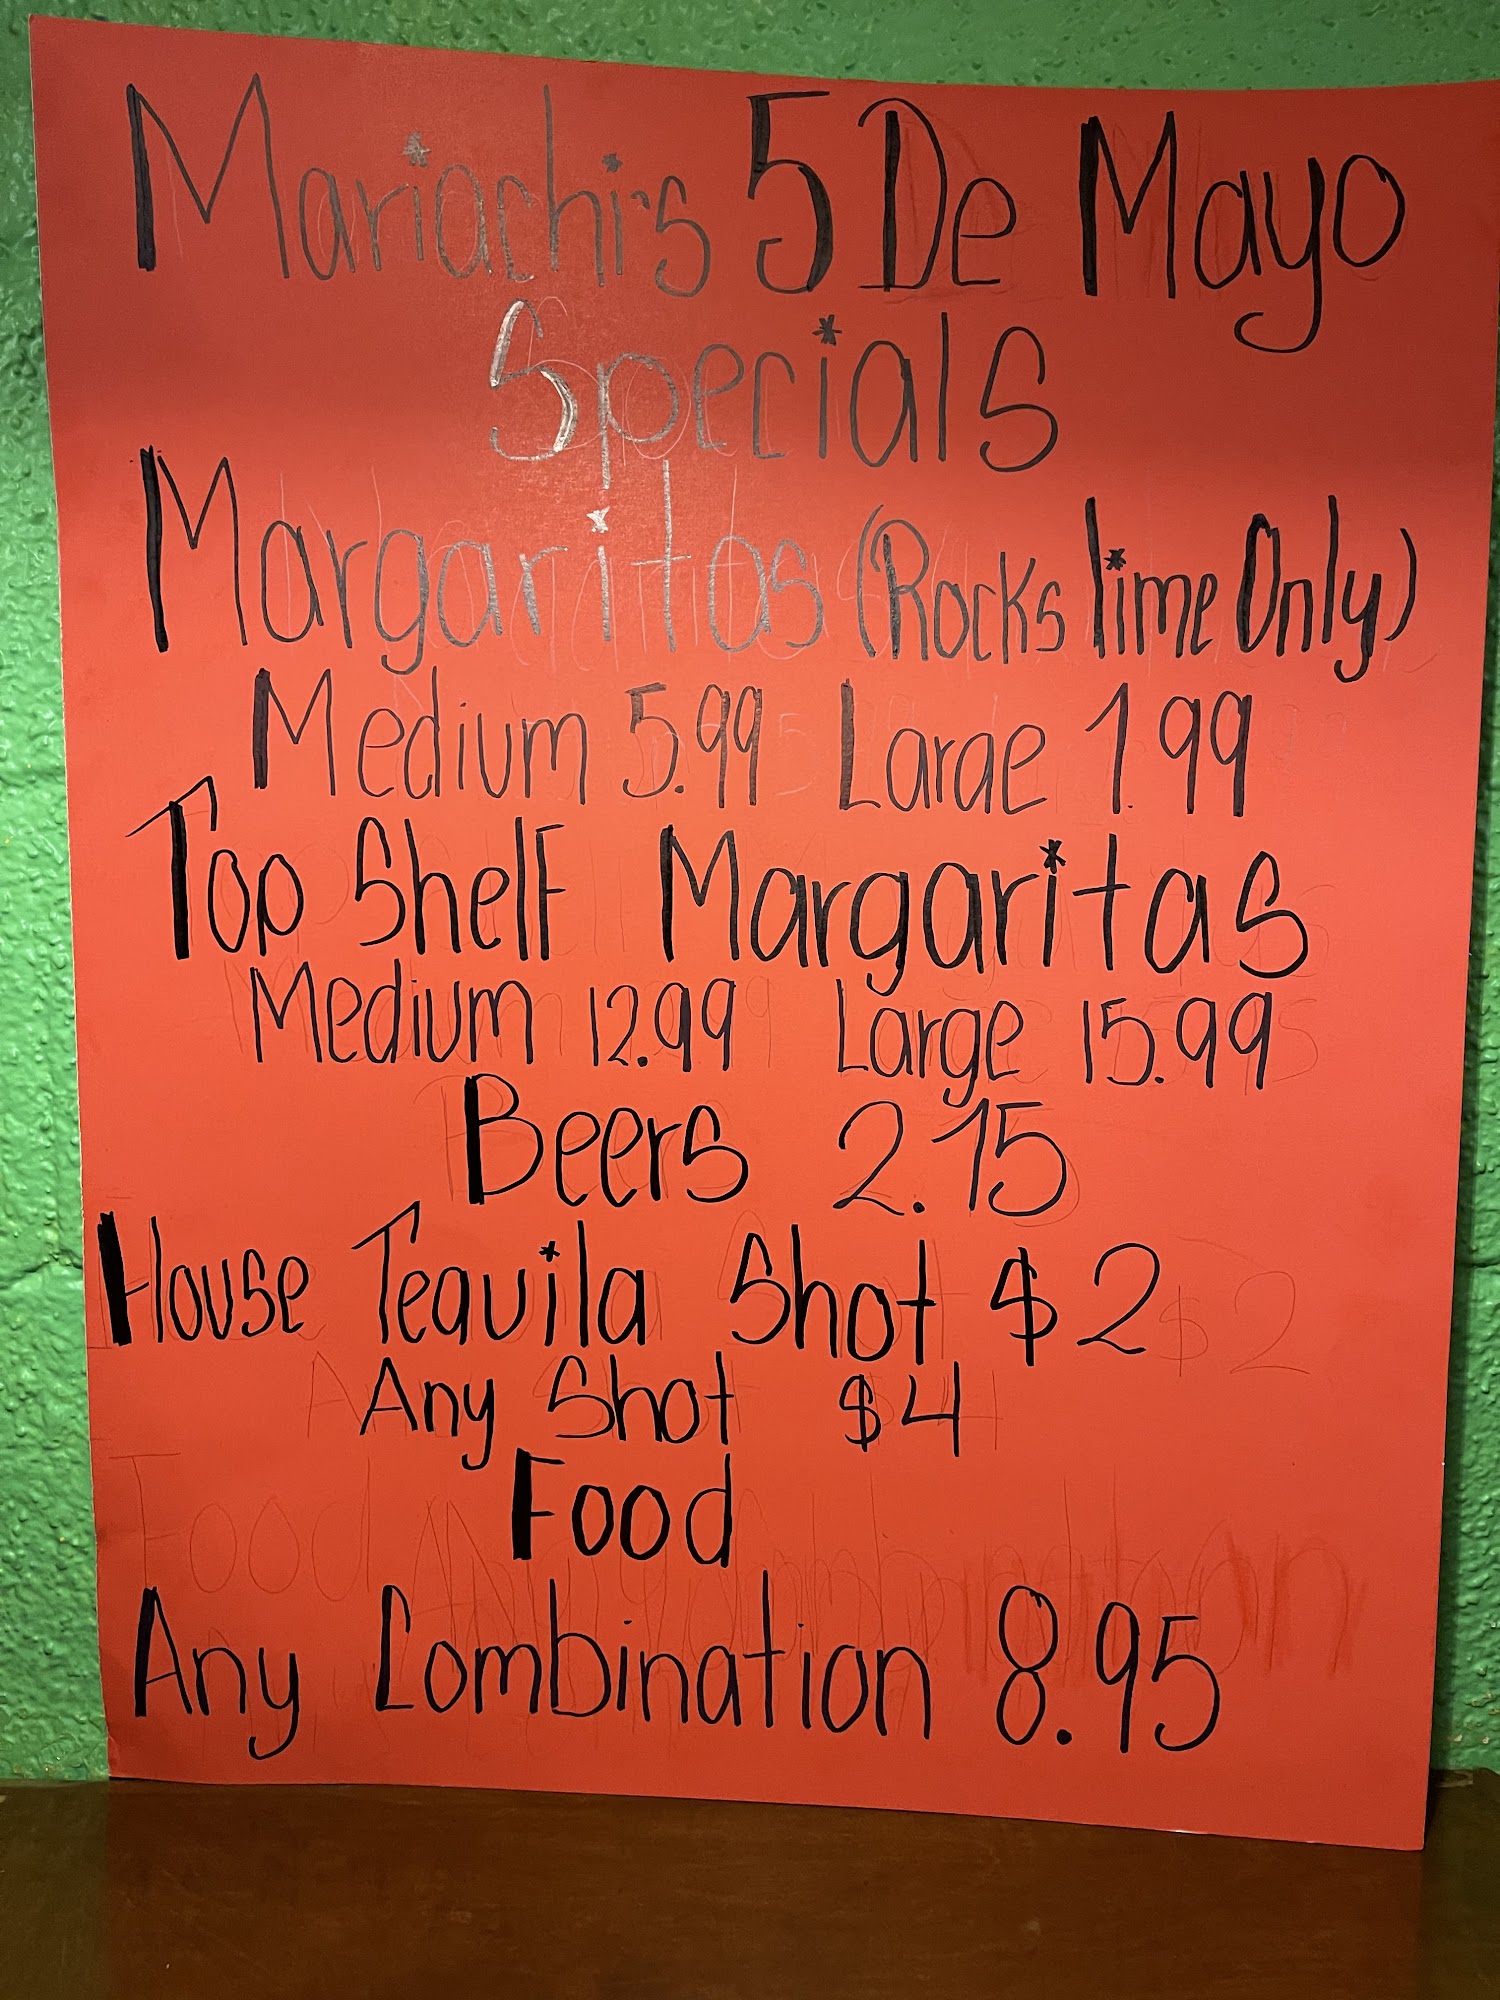 Mariachi's 5 De Mayo
Specials
Margaritas (Rocks lime Only)
Medium 5.99 Large 7.99
Top Shelf Margaritas
Medium 12.99 Large 15.99
Beers 2.75
House Tequila Shot $2
Any Shot $4
Food
Any Combination 8.95